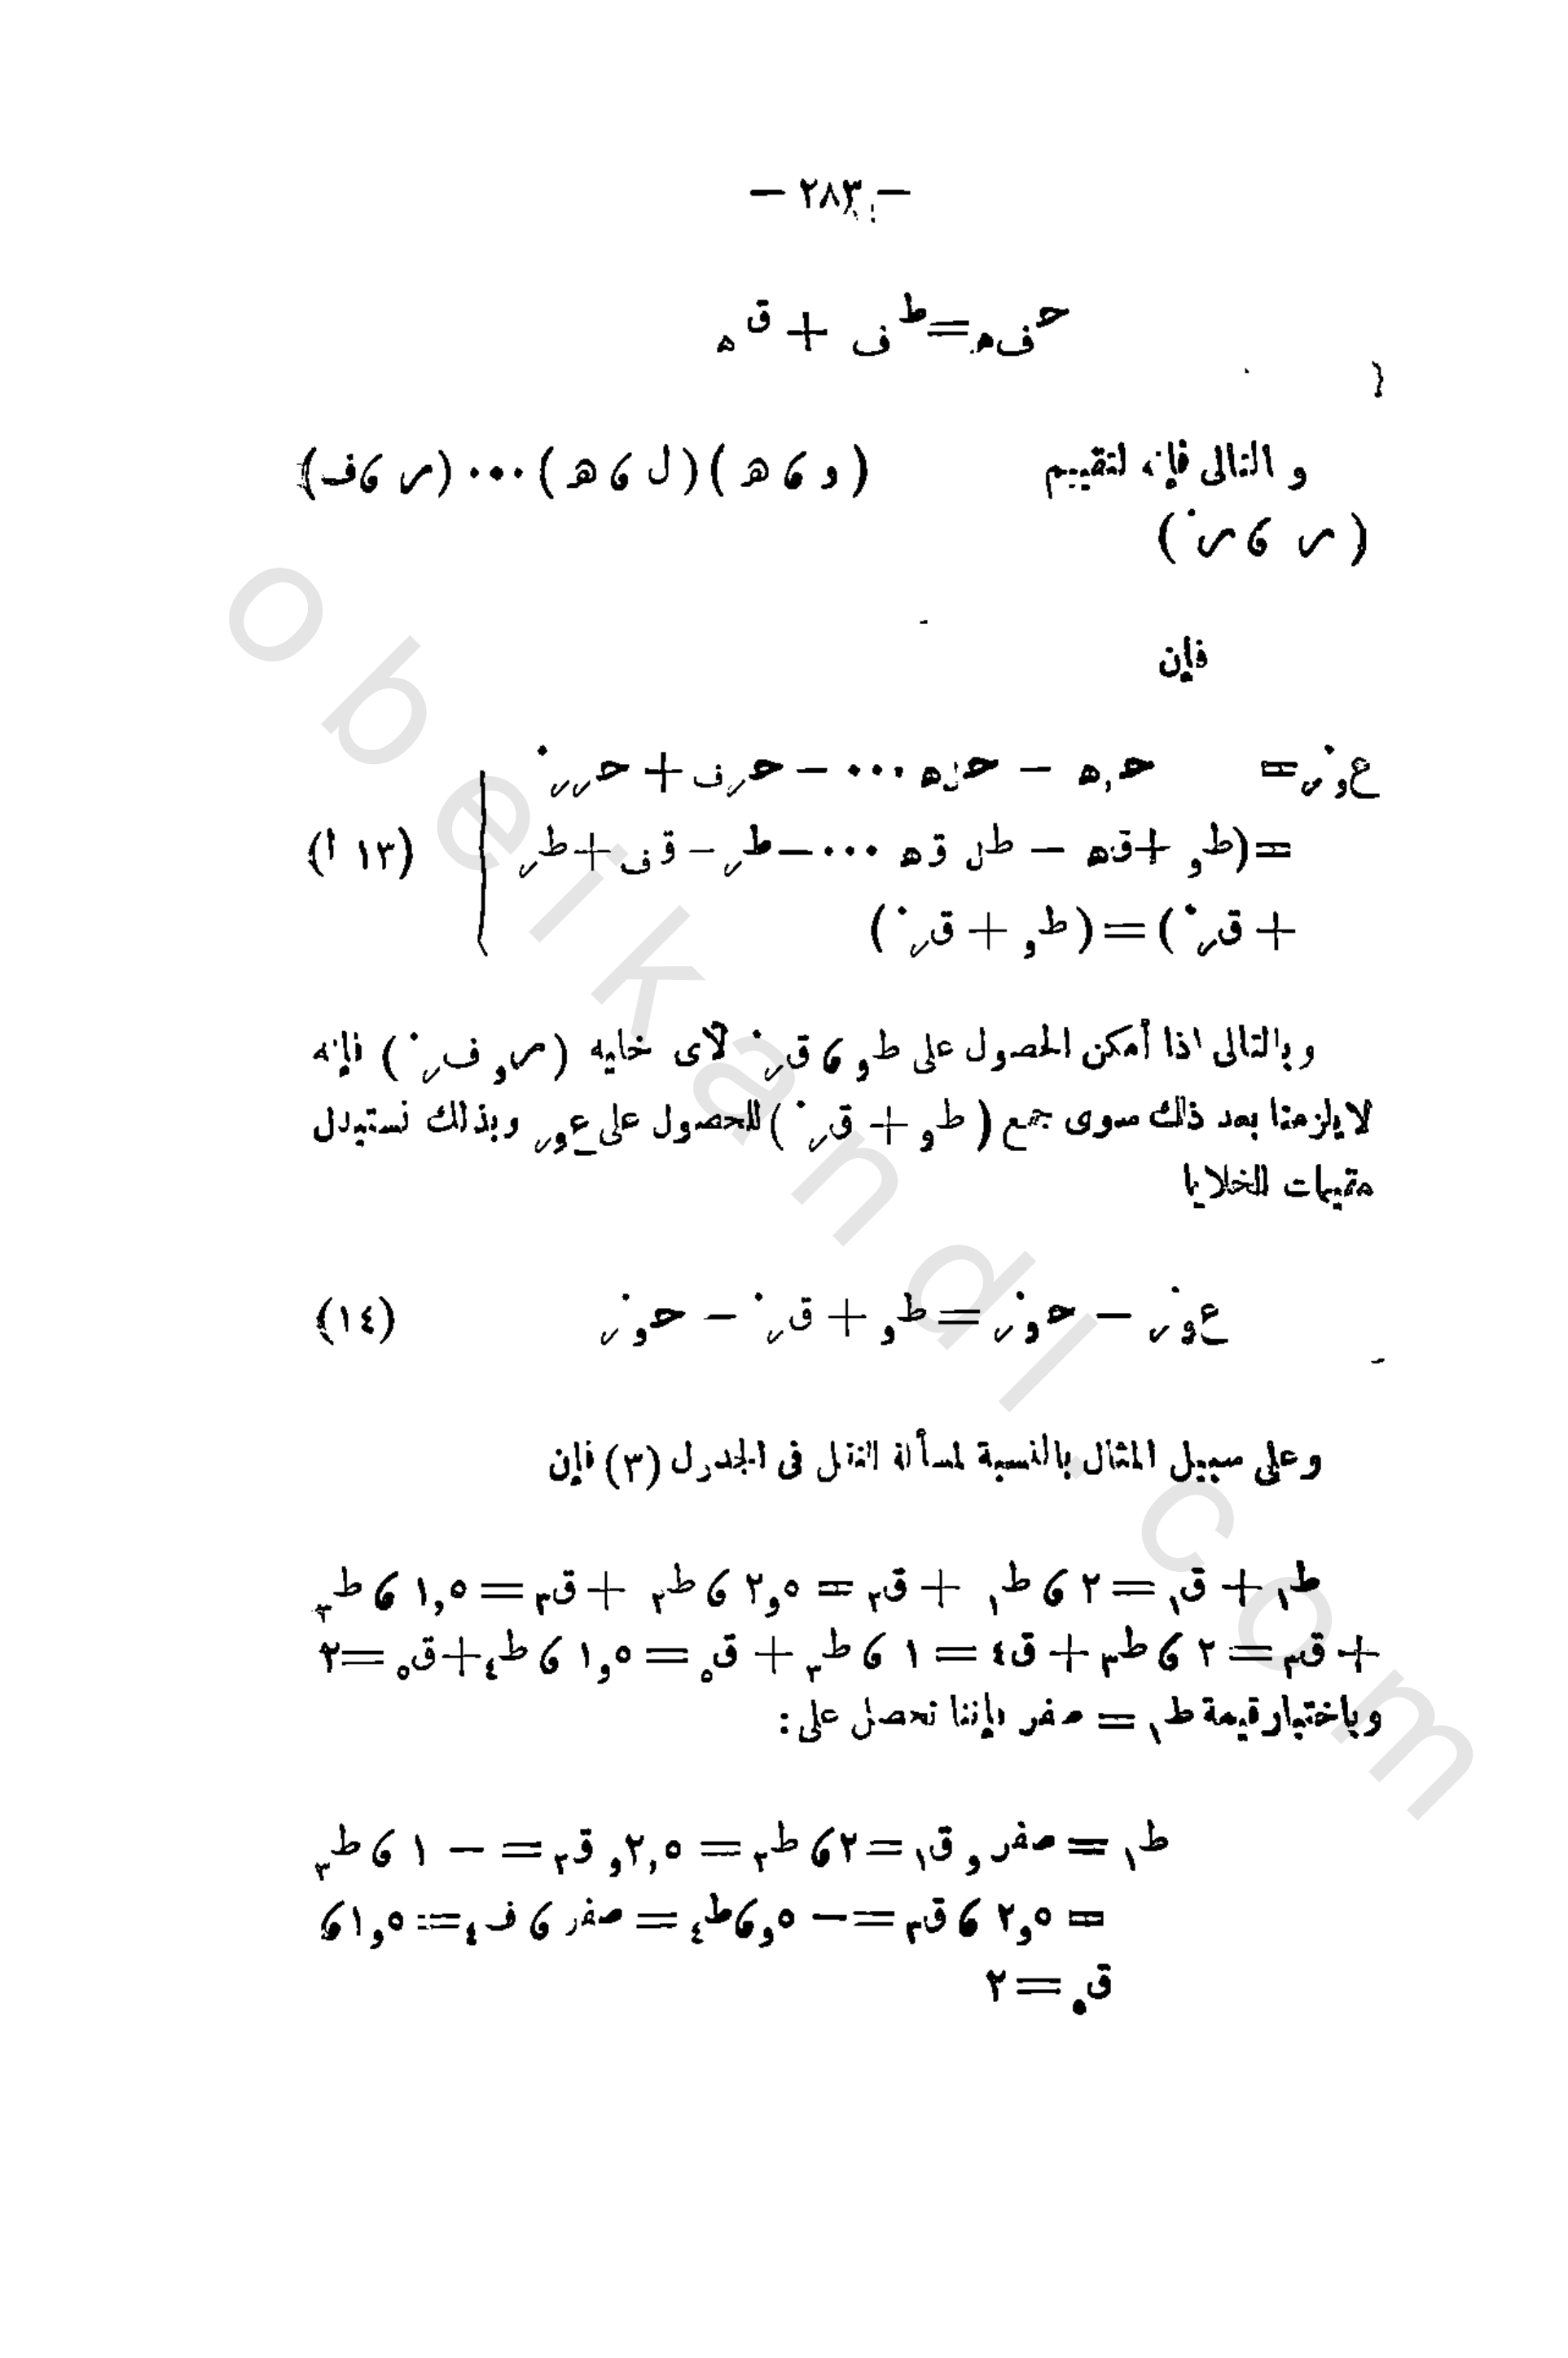 — ٢٨٣ —
حفه=طف + قه
و التالى فإنه لتقييم (و ، ه)(ل ، ه)...(ر ، ف)
(ر ، رَ)
فإن
= حوه - حله ... - حرف + حررَ
=(طو + قه - طل قه ... - طر - قف + طر (١٣ أ)
+ قرَ) = (طو + قرَ)
وبالتالى اذا أمكن الحصول على طو ، قرَ لآى خليه (رو فرَ) فإنه
لا يلزمنا بعد ذلك سوى جمع (طو + قرَ) للحصول على عور وبذلك نستبدل
مقيمات الخلايا
عورَ - حورَ = طو + قرَ - حورَ (١٤)
وعلى سبيل المثال بالنسبة لمسألة النقل فى الجدول (٣) فإن
ط١ + ق١ = ٢ ، ط١ + ق٣ = ٢,٥ ، ط٢ + ق٣ = ١,٥ ، ط٣
+ ق٣ = ٢ ، ط٣ + ق٤ = ١ ، ط٣ + ق٥ = ١,٥ ، ط٤ + ق٥ = ٢
وباختبار قيمة ط١ = صفر فإننا نحصل على :
ط١ = صفر و ق١ = ٢ ، ط٢ = ٢,٥ و ق٢ = - ١ ، ط٣
= ٢,٥ ، ق٣ = - ٥, ، ط٤ = صفر ، ف٤ = ١,٥ ،
ق٥ = ٢
obeikandl.com